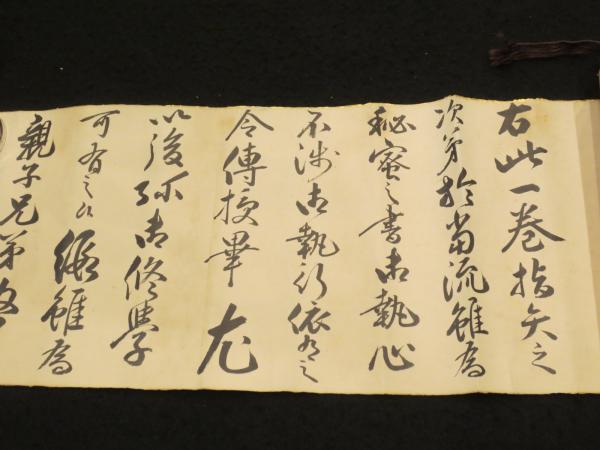 右此一巻指矢之
次第於當流雖為
秘蜜之書御執心
不浅御執行依有之
令傳授畢尤
以後弥御修學
可有之候縦雖為
親子兄弟